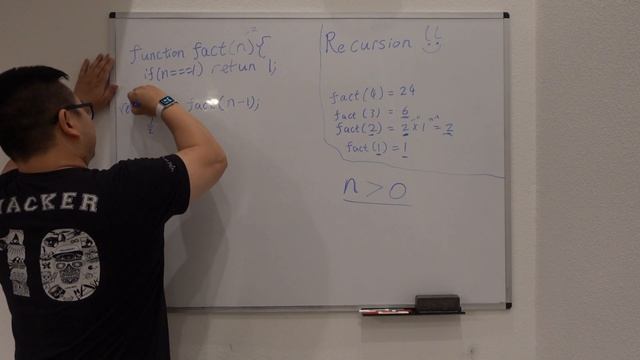 function fact(n){
if(n===1) return 1;
fact(n-1);
Recursion
fact(4) = 24
fact(3) = 6
fact(2) = 2 x 1 = 2
fact(1) = 1
n > 0
HACKER
10